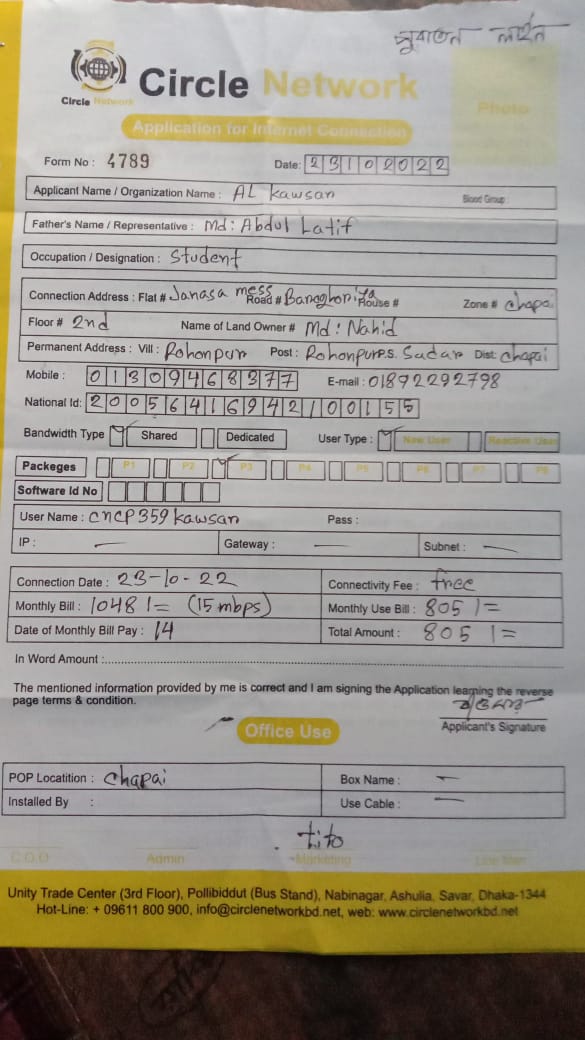 পুরাতন লাইন
Circle Network
Circle Network
Photo
Application for Internet Connection
Form No : 4789 Date: 23102022
Applicant Name / Organization Name : AL Kawsan Blood Group :
Father's Name / Representative : Md: Abdul Latif
Occupation / Designation : Student
Connection Address : Flat # Janasa mess Road # House # Zone # chapai
Floor # 2nd Name of Land Owner # Md : Nahid
Permanent Address : Vill : Rohonpur Post : Rohonpur P.S. Sadar Dist: chapai
Mobile : 01309468377 E-mail : 01892292798
National Id: 20056416942100155
Bandwidth Type Shared Dedicated User Type : New User Reactive User
Packeges P1 P2 P3 P4 P5 P6 P7 P8
Software Id No
User Name : cncp359kawsan Pass :
IP : — Gateway : — Subnet : —
Connection Date : 23-10-22 Connectivity Fee : free
Monthly Bill : 1048/= (15 mbps) Monthly Use Bill : 805/=
Date of Monthly Bill Pay : 14 Total Amount : 805/=
In Word Amount :
The mentioned information provided by me is correct and I am signing the Application learning the reverse
page terms & condition.
Applicant's Signature
Office Use
POP Locatition : Chapai Box Name : —
Installed By : Use Cable : —
tito
C.O.O Admin Marketing Line Man
Unity Trade Center (3rd Floor), Pollibiddut (Bus Stand), Nabinagar, Ashulia, Savar, Dhaka-1344
Hot-Line: + 09611 800 900, info@circlenetworkbd.net, web: www.circlenetworkbd.net